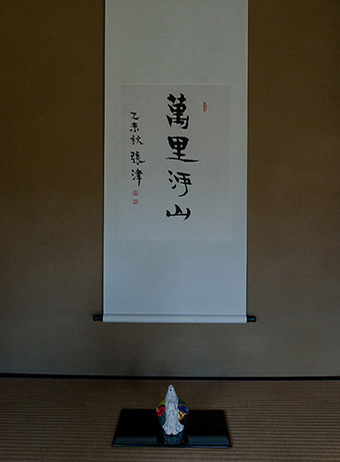 萬里河山
乙未秋 張津